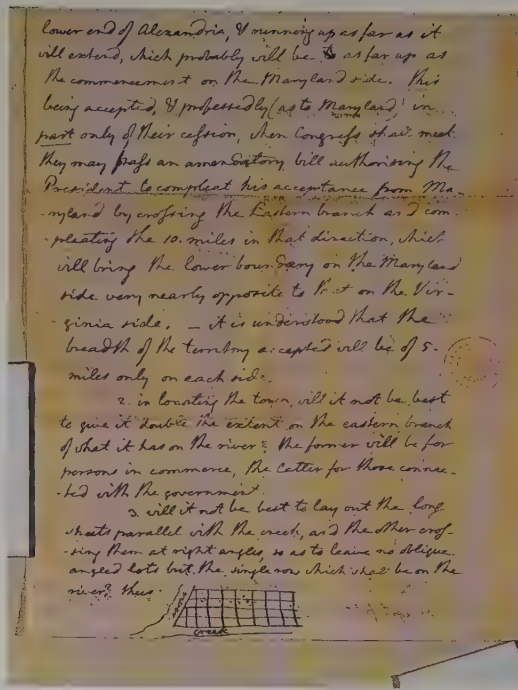 lower end of Alexandria, & running up as far as it
will extend, which probably will be as far up as
the commencement on the Maryland side. this
being accepted, & professedly (as to Maryland) in
part only of their cession, when Congress shall meet
they may pass an amendatory bill authorising the
President to compleat his acceptance from Ma-
-ryland by crossing the Eastern branch and com-
-pleating the 10. miles in that direction, which
will bring the lower boundary on the Maryland
side very nearly opposite to that on the Vir-
-ginia side. — it is understood that the
breadth of the territory accepted will be of 5.
miles only on each side.
2. in locating the town, will it not be best
to give it double the extent on the eastern branch
of what it has on the river? the former will be for
persons in commerce, the latter for those connec-
-ted with the government.
3. will it not be best to lay out the long
streets parallel with the creek, and the other cros-
-sing them at right angles, so as to leave no oblique
angled lots but the single row which shall be on the
river? thus
river
creek